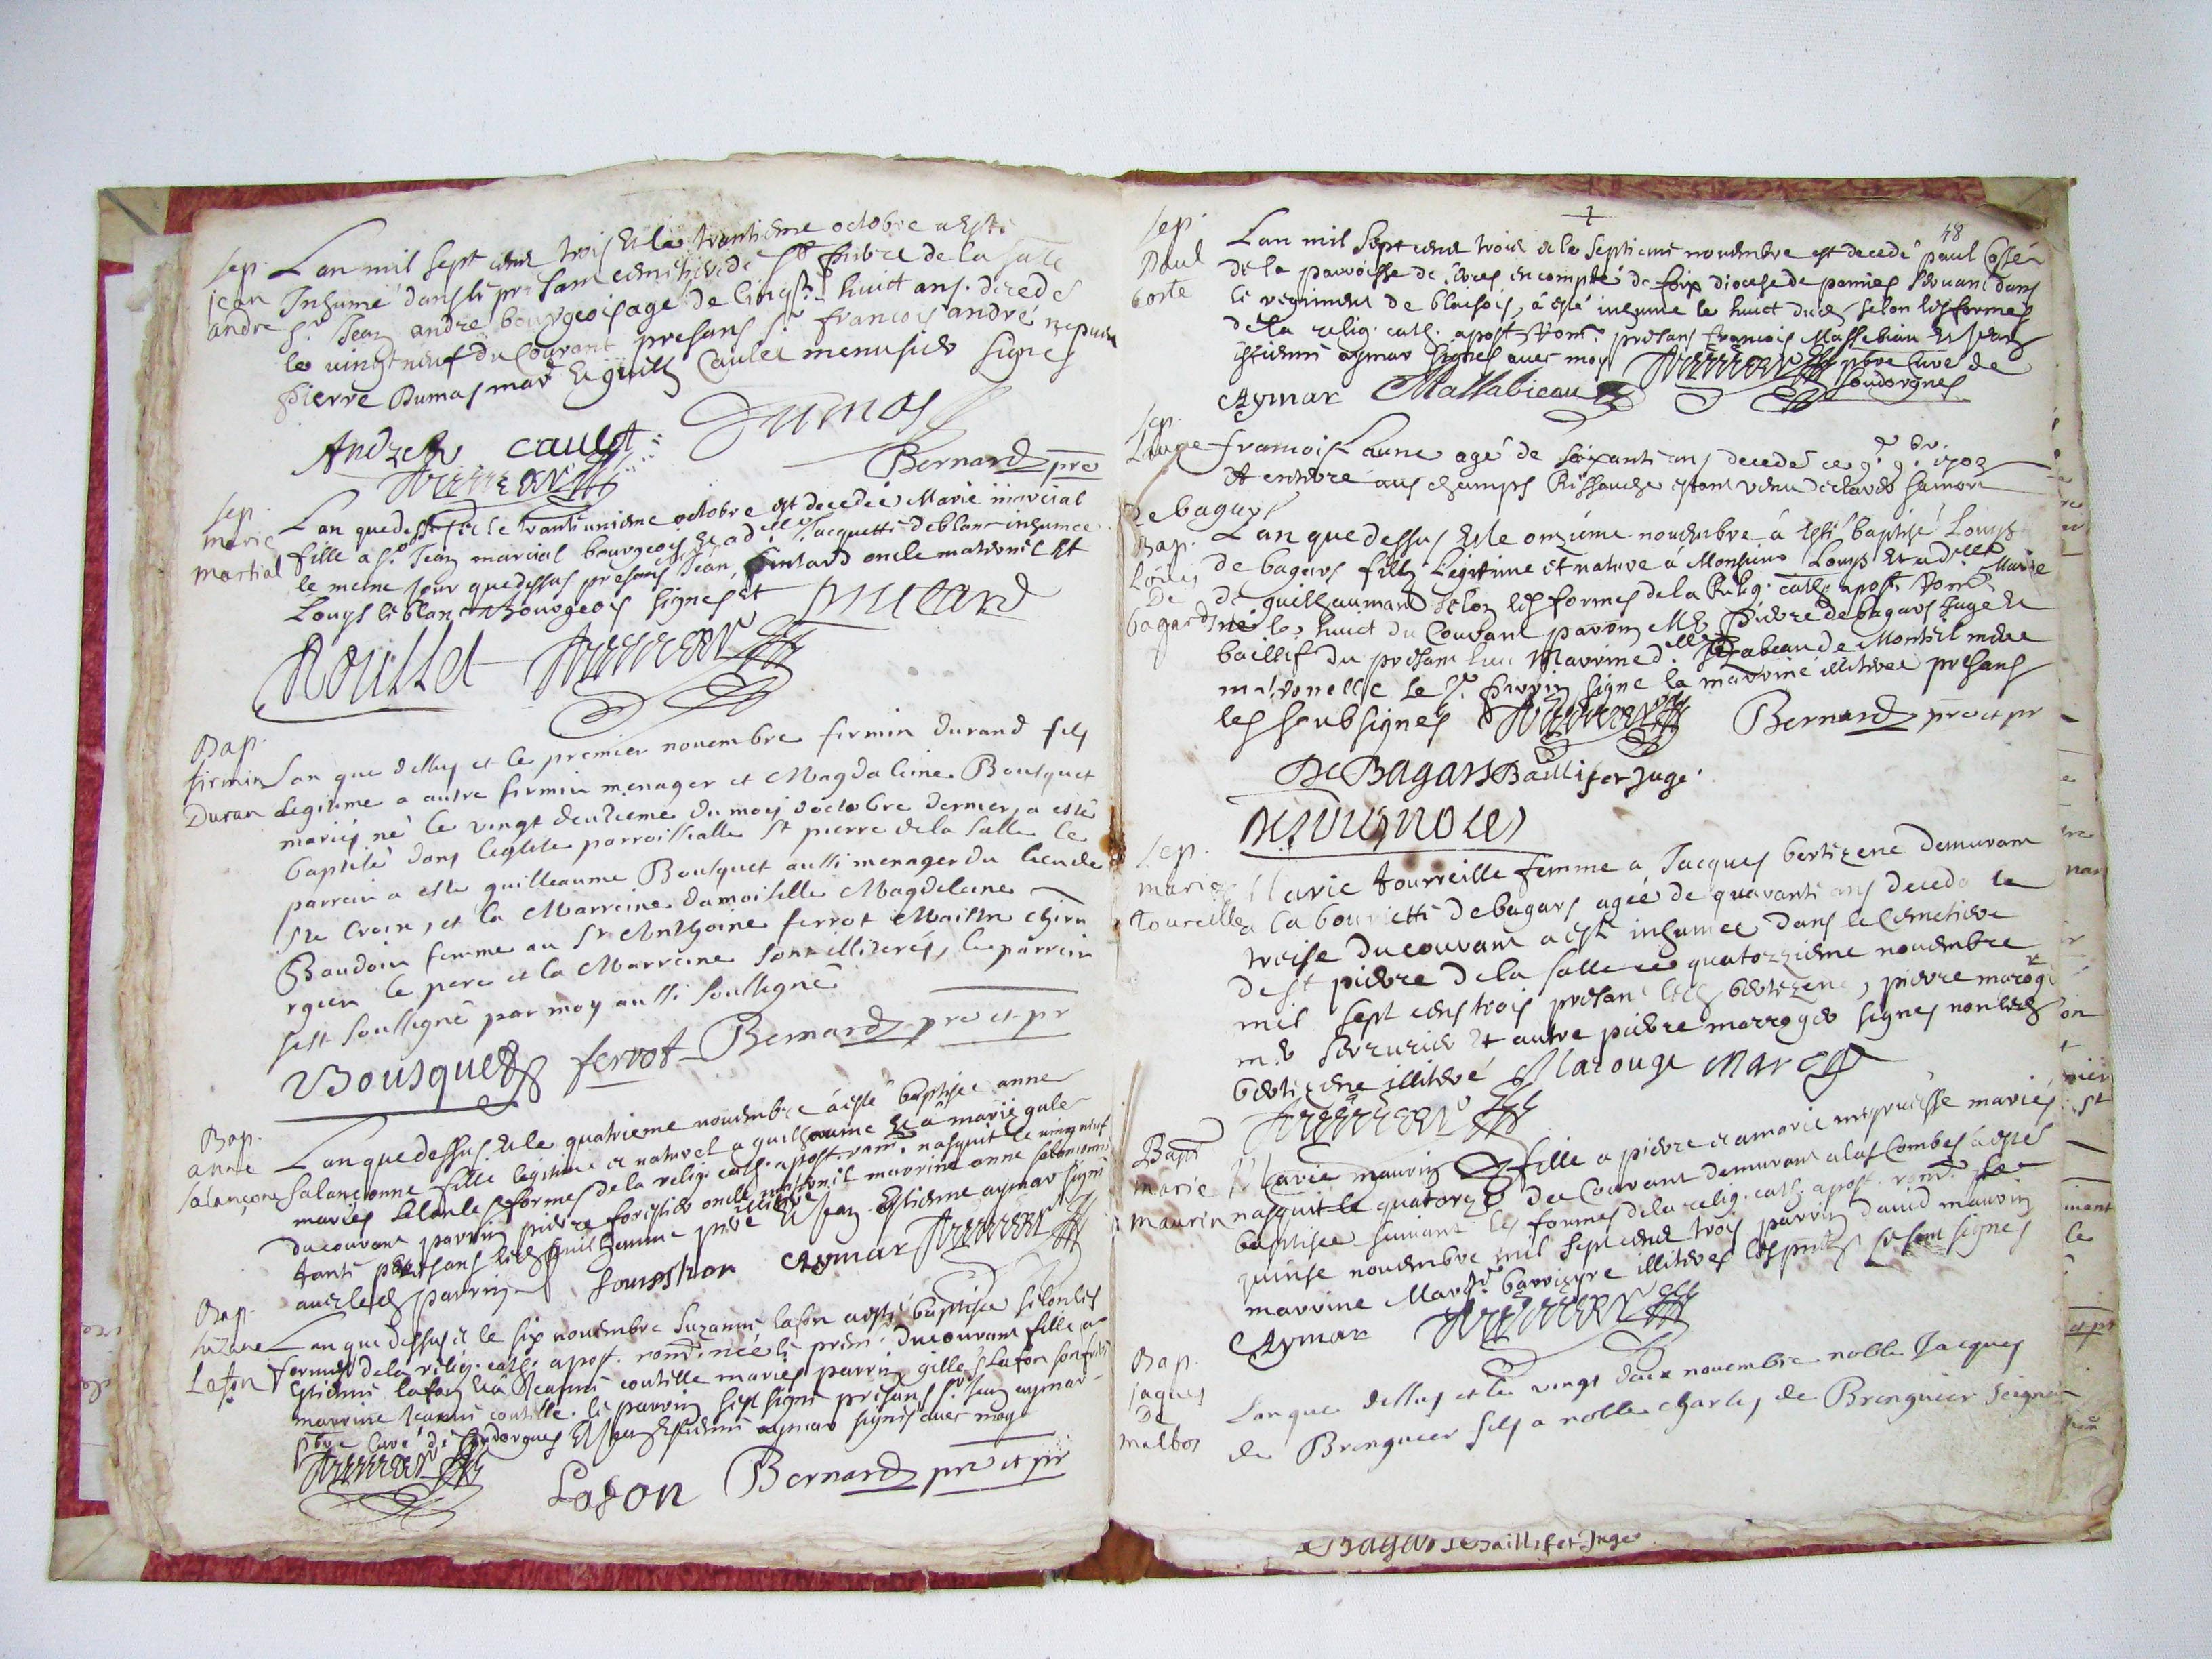 sep. Lan mil sept cens trois et le trantiesme octobre a esté
jean Inhumé dans le pnt cemetiere de St pierre de la sale
andre Sr. Jean andre bourgeois agé de cinqte huict ans. decedé
le vingt neuf du Courant presans Sr. francois andré nepueu
pierre Dumas mar et guilh Caulet menusier signes
Andre Caulet Dumas
Bernard pre
sep. Lan que dessus et le trante unieme octobre est decedée Marie marcial
marie fille a Sr. Jean marcial bourgeois et a dlle Jacquette deblanc inhumee
martial le meme jour que dessus presans Jean Pintard oncle maternel et
Louys leblanc bourgeois signes et
Rouilet pintard
Bap.
firmin Lan que dessus et le premier novembre firmin durand fils
Duran Legitime a autre firmin menager et Magdaleine Bousquet
mariés né le vingt deuxieme du mois doctobre dernier, a esté
baptisé dans leglise parroissialle St pierre dela salle le
parrein a esté guilleaume Bousquet aussi menager du lieu de
Ste Croix, et la Marreine damoiselle Magdeleine
Baudoin femme au Sr Anthoine ferrot Maistre chiru
rgien le pere et la Marreine sont illiterés, le parrein
sest soussigné par moy aussi soussigné
Bousquet ferrot Bernard pre et pr
Bap. Lan que dessus et le quatrieme novembre a esté baptisée anne
anne salançonne fille legitime et naturel a guilhaume et a marie gale
salançone mariés selon les formes de la relig. cath. apost. rom. nasquit le vingneuf
du courant parrin pierre forestier oncle maternel marrine anne
presans led guilhaume pere et Jean Estienne aymar signes
avec led parrin Aymar
Bap.
suzane Lan que dessus et le six novembre Suzanne lafon a esté baptisée selon les
Lafon formes de la relig. cath. apost. rom. née le prem. du courant fille a
Estienne lafon et a Jeanne coutelle mariés parrin gilles Lafon son frere
marrine Jeanne coutelle. le parrin sest signé presans Sr. Jean aymar
pbre curé de Soudorgues et Jean Estienne aymar signés avec moy
Lafon Bernard pre et pr
48
sep. Lan mil Sept cens trois et le Septieme novembre est decedé paul Costé
Paul de la parroisse de en compté de foix diocese de pamies servant dans
Coste le regiment de blaisois, a esté inhumé le huict dud selon les formes
de la relig. cath. apost. Rom. presans francois Massebiau et Jean
estienne aymar signes avec moy pbre Curé de
Aymar Massabieau Soudorgues
sep.
Laune francois Laune agé de soixante ans decedé ce 9e. 9br. 1703
et enterré aus champs
de bagars
Bap. Lan que dessus et le onsieme novembre a esté baptisé Louys
Louis de bagars fils Legitime et naturel a Monsieur Louys et a dlle Marie
De de guilhaumand selon les formes de la Relig. cath. apost. Rom.
bagards né le huict du Courant parrin Mr Pierre de bagars Juge et
baillif du presant lieu Marrine dlle Isabeau de Monteil mere
maternelle le Sr. parrin signe la marrine illiteree presans
les soubsignes Bernard pre et pr
De Bagars Baillif et Juge
sep.
marie Marie tourreille femme a Jacques bertezene demurant
Toureille a la bouriette de bagars agée de quarante ans deceda le
treise du courant a esté inhumee dans le Cemetiere
de St pierre de la salle ce quatorzieme novembre
mil sept cens trois presans led bertezene, pierre maroger
me serrurier et autre pierre marroger signes non led
bertezene illiteré Marouge Maroger
Bapt Marie maurin fille a pierre et a marie mariés
marie nasquit le quatorze du Courant demurant a las Combes a esté
maurin baptisee suivant les formes de la relig. cath. apost. rom. ce
quinse novembre mil sept cens trois parrin david maurin
marrine Margte. illiteres les pnts se sont signes
Aymar
Bap.
jaques Lan que dessus et le vingt deux novembre noble Jacques
De de Brenguier fils a noble charles de Brenguier Seigneur
malbos
De Bagars Baillif et Juge